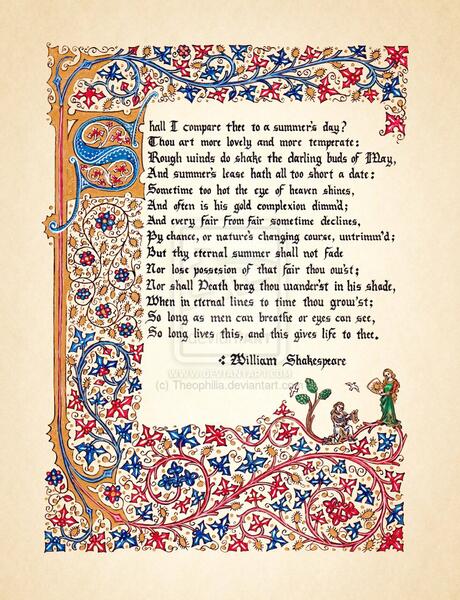 Shall I compare thee to a summer's day?
Thou art more lovely and more temperate:
Rough winds do shake the darling buds of May,
And summer's lease hath all too short a date:
Sometime too hot the eye of heaven shines,
And often is his gold complexion dimm'd;
And every fair from fair sometime declines,
Py chance, or nature's changing course, untrimm'd;
But thy eternal summer shall not fade
Nor lose possesion of that fair thou ow'st;
Nor shall Death brag thou wander'st in his shade,
When in eternal lines to time thou grow'st;
So long as men can breathe or eyes can see,
So long lives this, and this gives life to thee.
William Shakespeare
WWW.DEVIANTART.COM
(c) Theophilia.deviantart.com